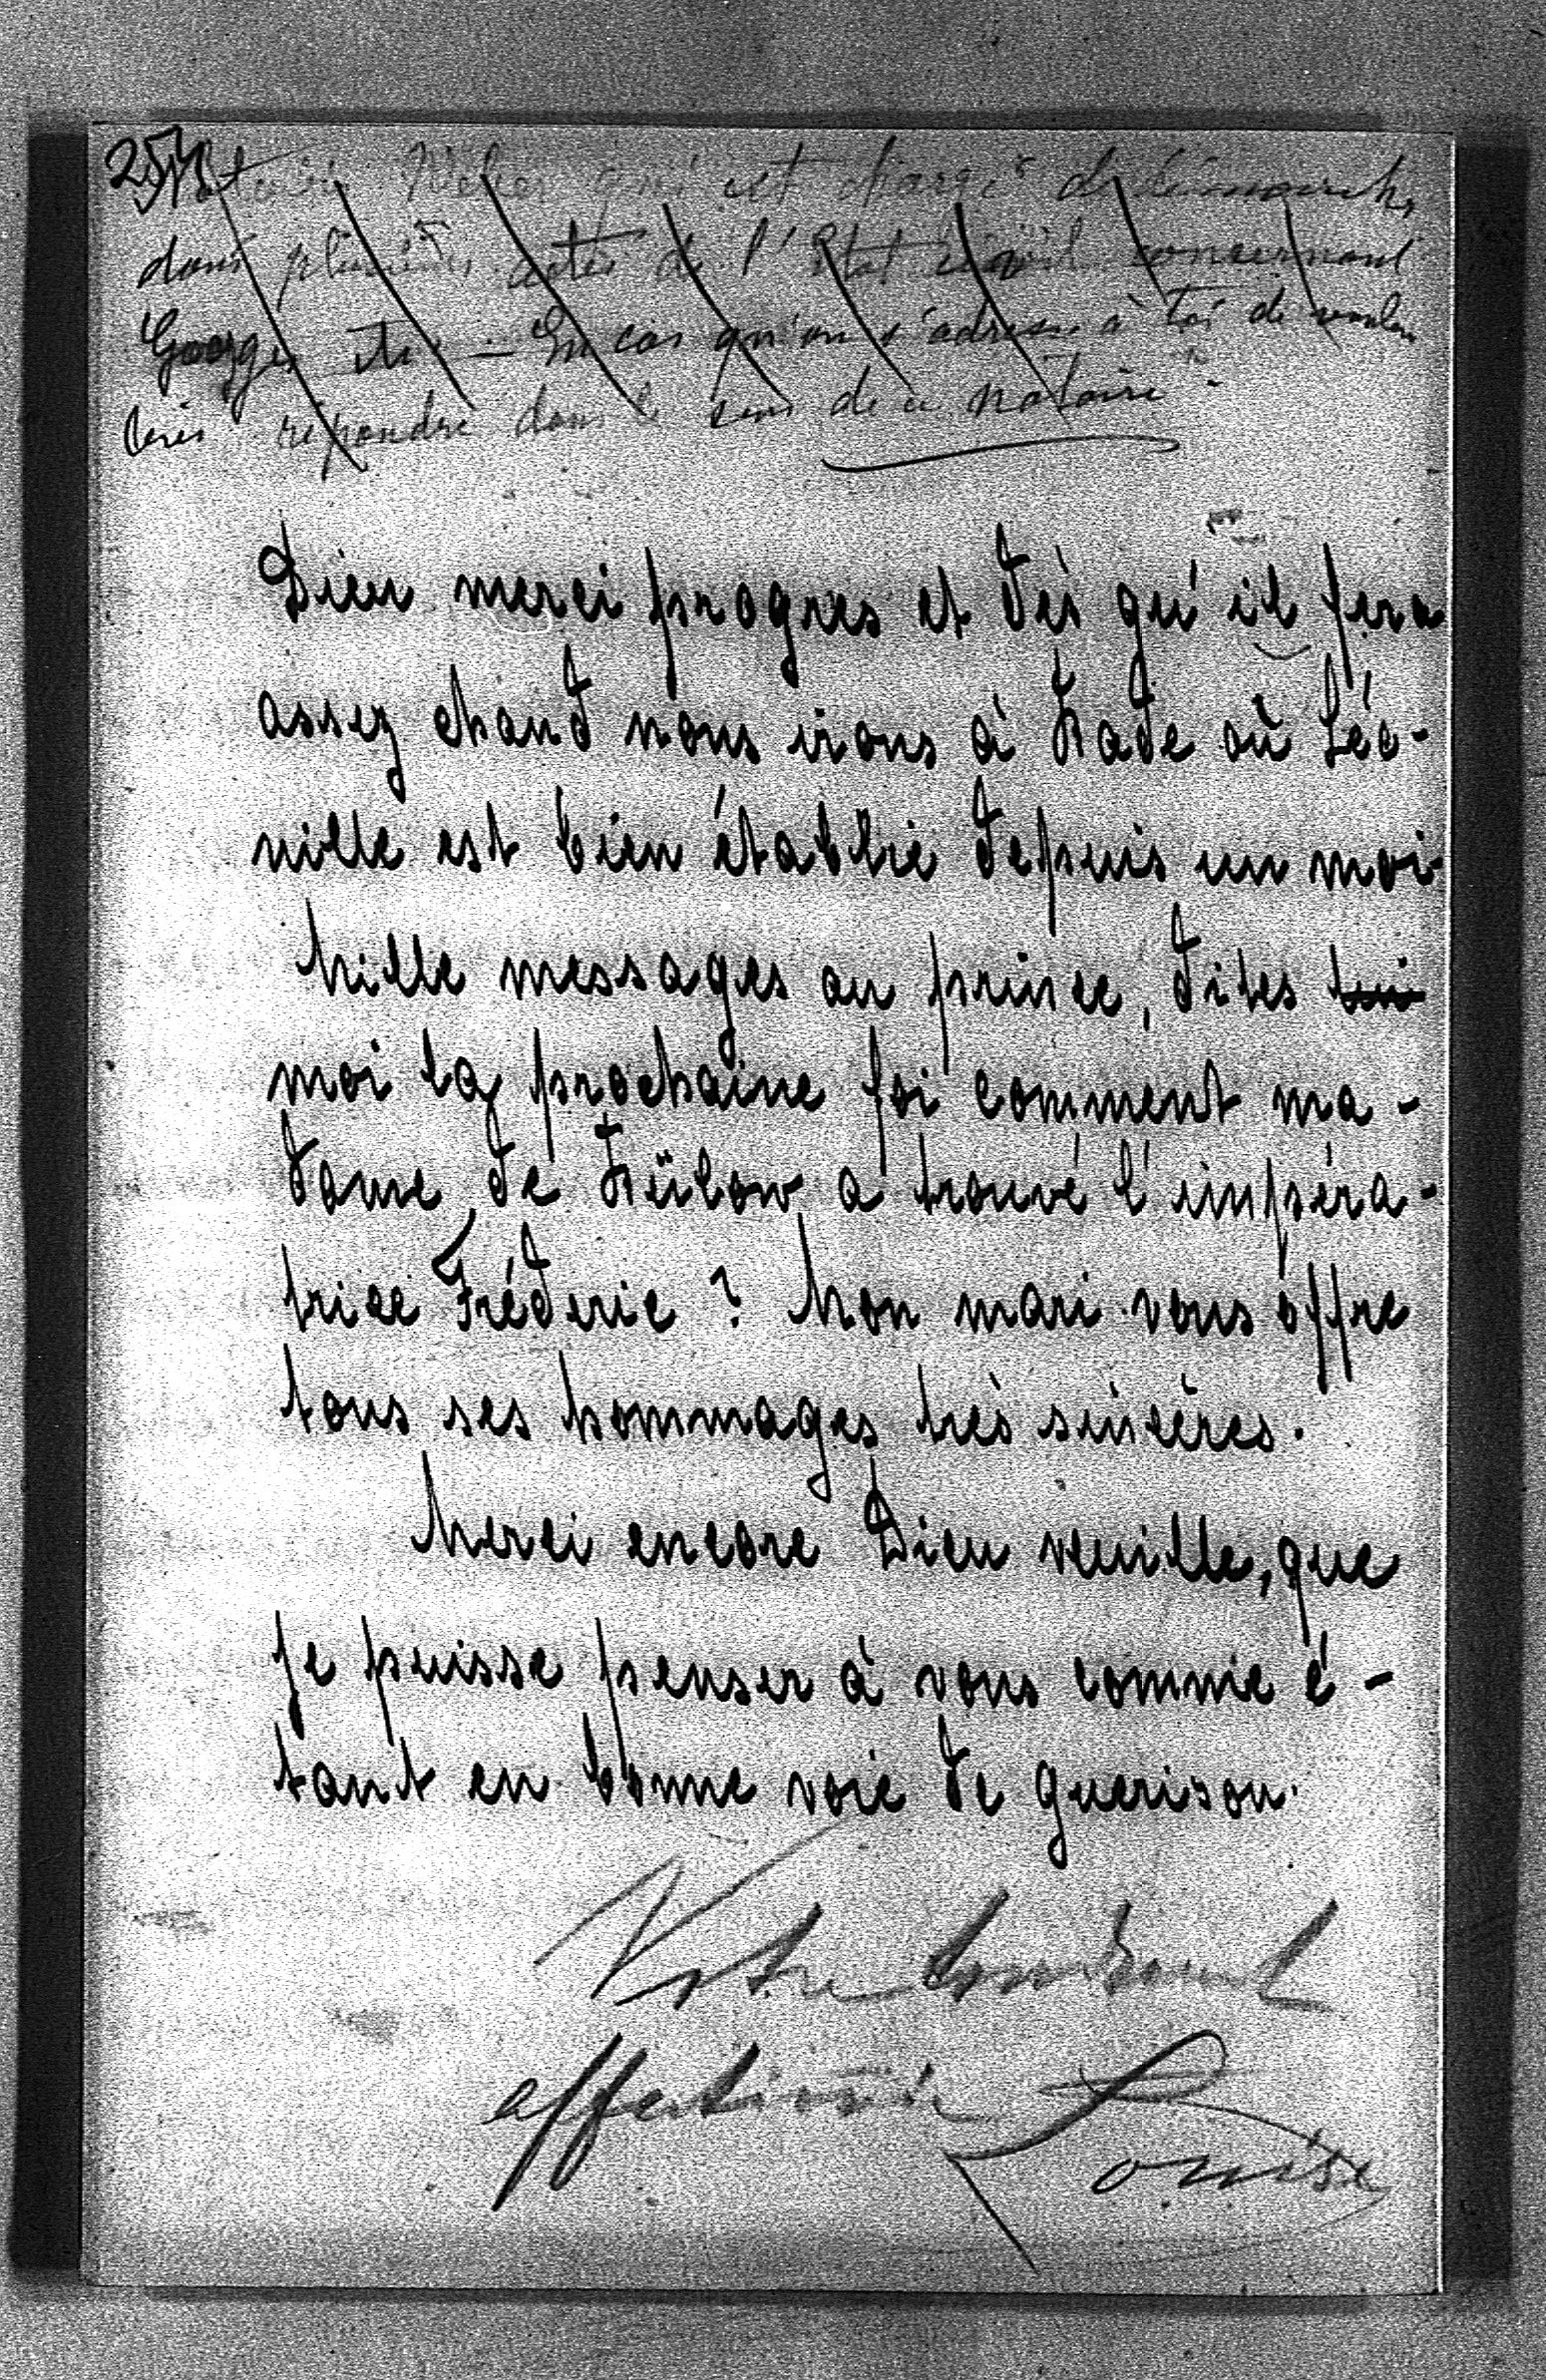 254
qui est chargé de démarches
dans plusieurs actes de l'Etat civil concernant
Georges etc — En cas qu'on s'adresse à toi de vouloir
bien répondre dans le sens de ce notaire.
Dieu merci progres et dès qu'il fera
assez chaud nous irons à Bade où Léo-
nille est bien établie depuis un moi
Mille messages au prince, dites lui
moi la prochaine foi comment ma-
dame de Bülow a trouvé l'impéra-
trice Fréderic ? Mon mari vous offre
tous ses hommages très sincères.
Merci encore Dieu veuille, que
je puisse penser à vous comme é-
tant en bonne voie de guerison.
Votre
affectionnée Louise